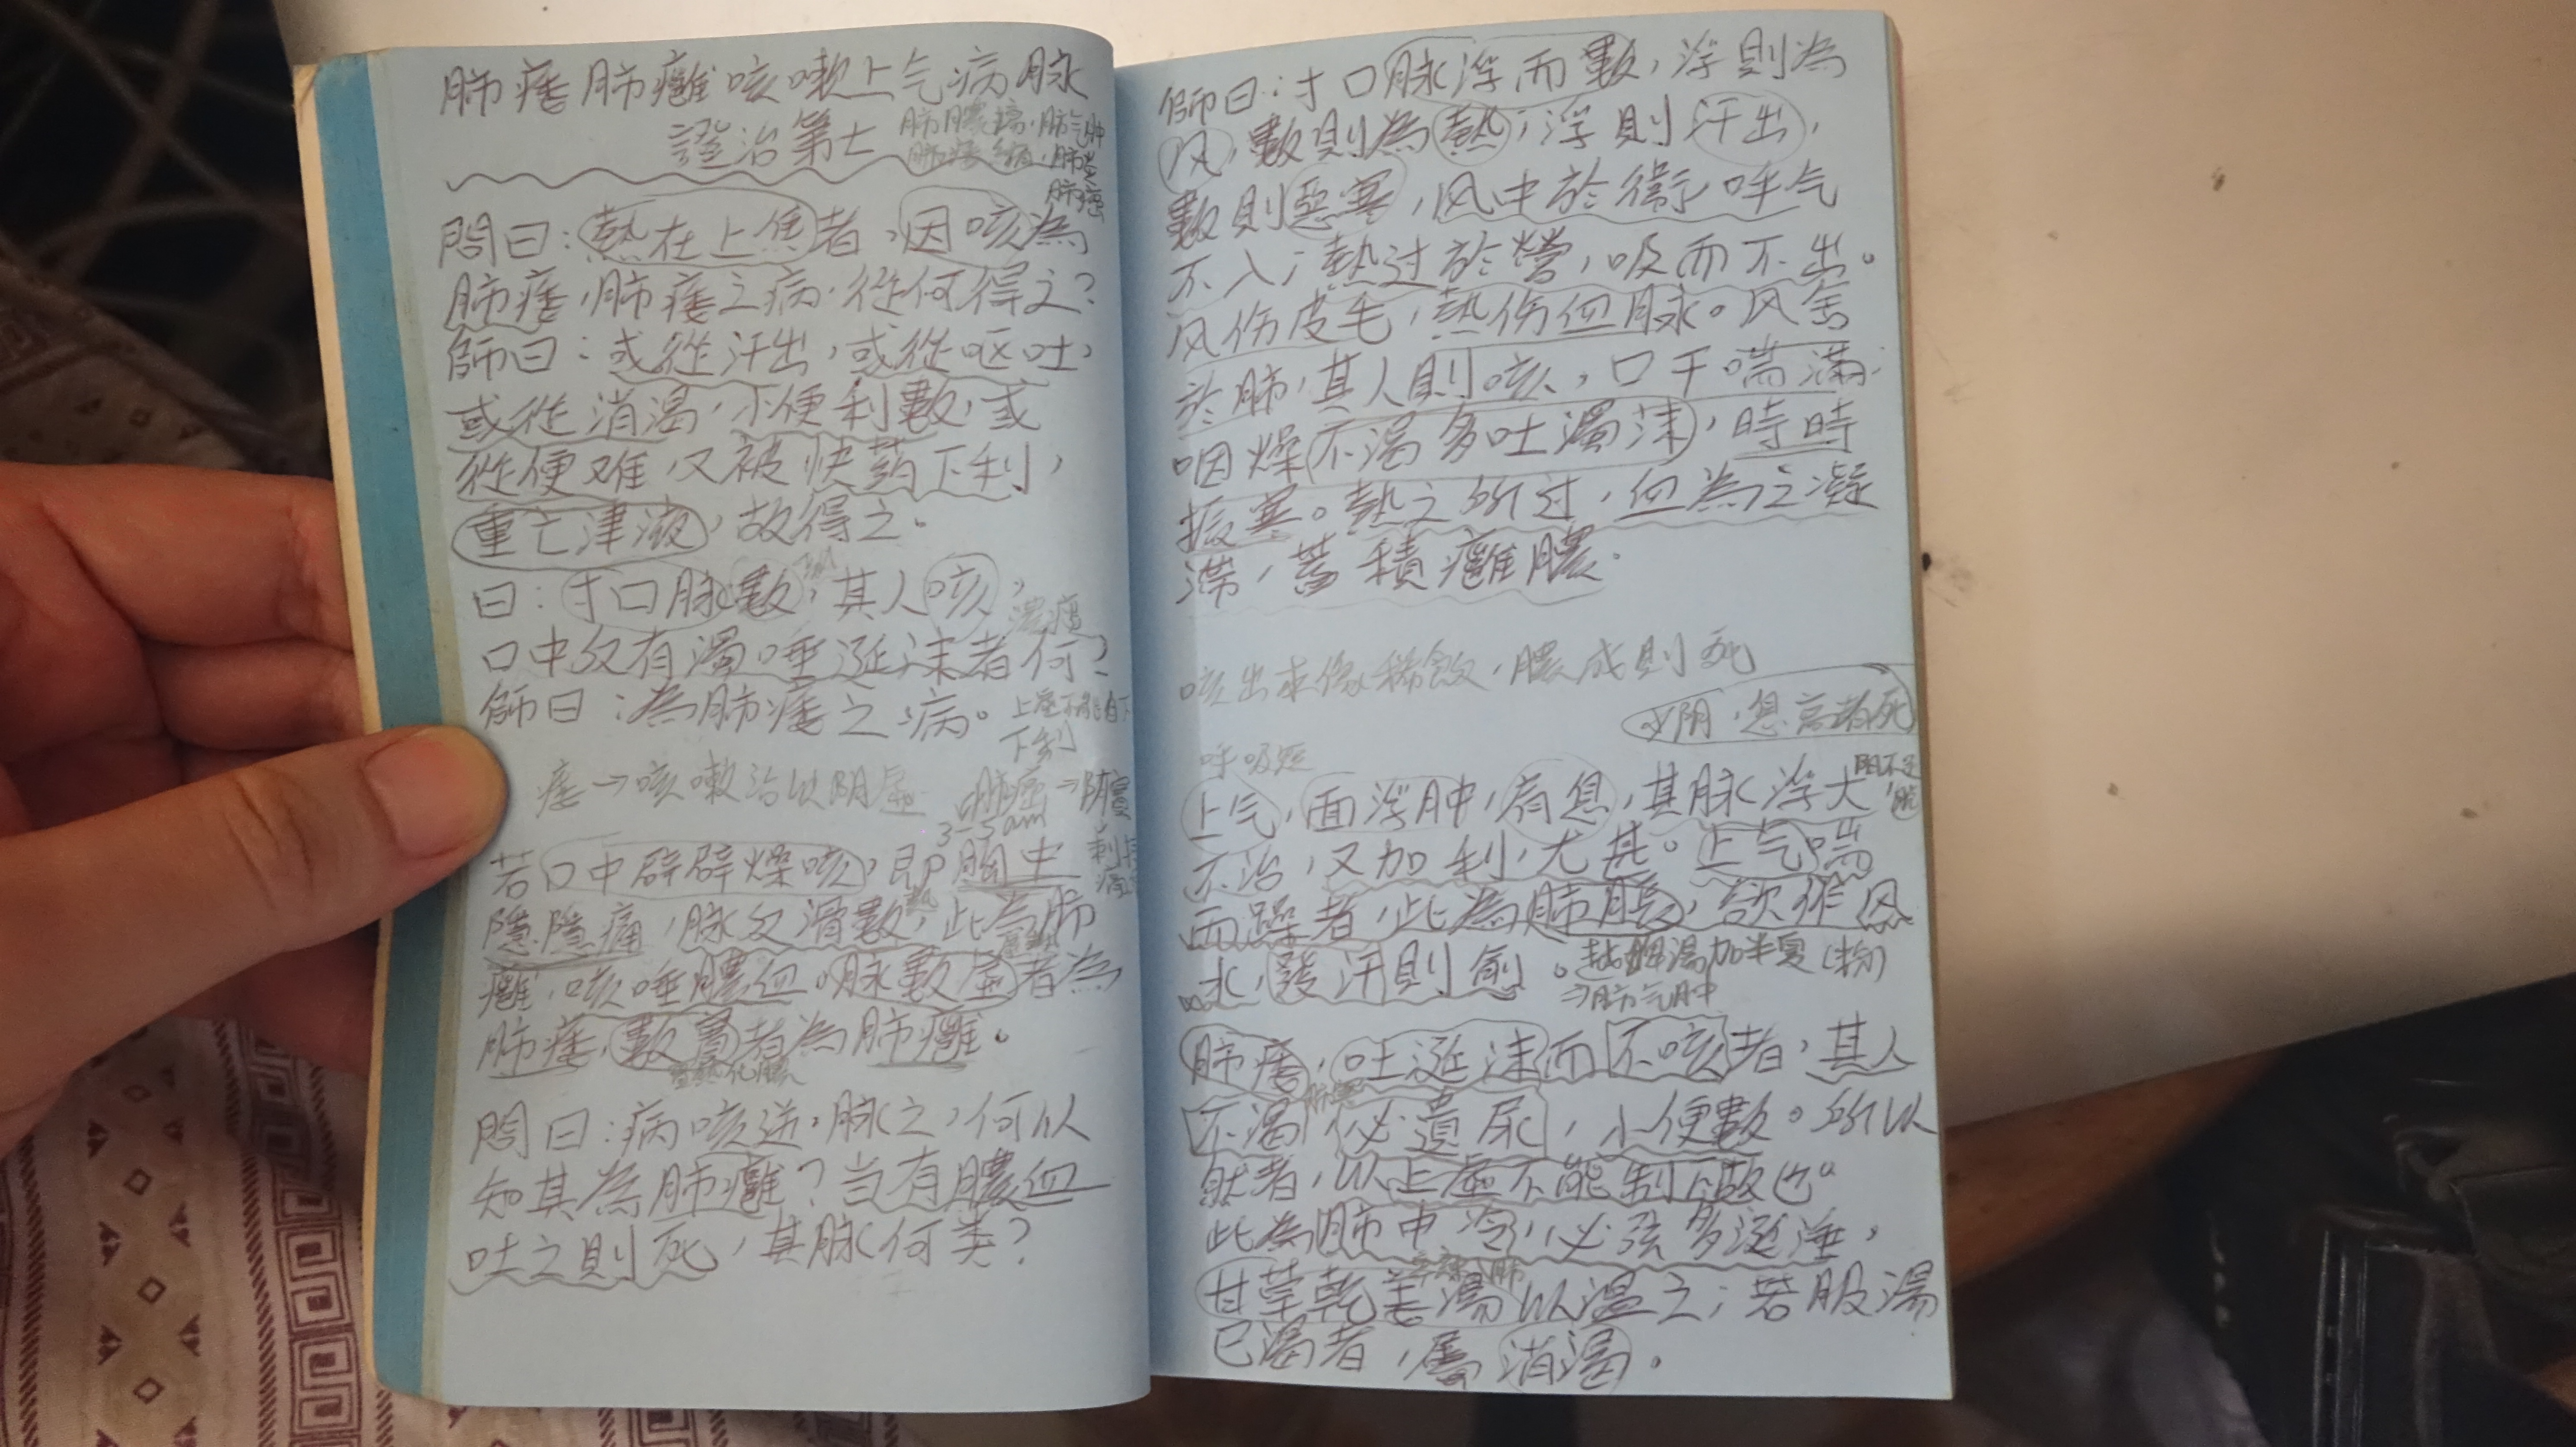 肺痿肺癰咳嗽上气病脉
證治第七
肺膿瘍,肺气肿
問曰:熱在上焦者,因咳為
肺痿,肺痿之病,從何得之?
師曰:或從汗出,或從呕吐,
或從消渴,小便利數,或
從便难,又被快药下利,
重亡津液,故得之。
曰:寸口脉數,其人咳,
口中反有濁唾涎沫者何?
師曰:為肺痿之病。
上虛不能制下
下利
痿→咳嗽治以阴虛
肺癰⇒肺實
3-5am
若口中辟辟燥咳,即胸中
隱隱痛,脉反滑數,此為肺
癰,咳唾膿血。脉數虛者為
肺痿,數實者為肺癰。
實熱化膿
問曰:病咳逆,脉之,何以
知其為肺癰?当有膿血
吐之則死,其脉何类?
師曰:寸口脉浮而數,浮則為
风,數則為熱;浮則汗出,
數則惡寒,风中於衛,呼气
不入;熱过於營,吸而不出。
风伤皮毛,熱伤血脉。风舍
於肺,其人則咳,口干喘滿.
咽燥不渴多吐濁沫,時時
振寒。熱之所过,血為之凝
滯,蓄積癰膿.
咳出來像稀飯,膿成則死
少阴,息高者死
呼吸短
上气,面浮肿,肩息,其脉浮大
不治,又加利,尤甚。上气喘
而躁者,此為肺脹,欲作风
水,發汗則愈。
越婢湯加半夏
⇒肺气肿
肺痿,吐涎沫而不咳者,其人
不渴,必遺尿,小便數。所以
然者,以上虛不能制下故也。
此為肺中冷,必眩多涎唾,
辛辣入肺
甘草乾姜湯以温之;若服湯
已渴者,屬消渴。